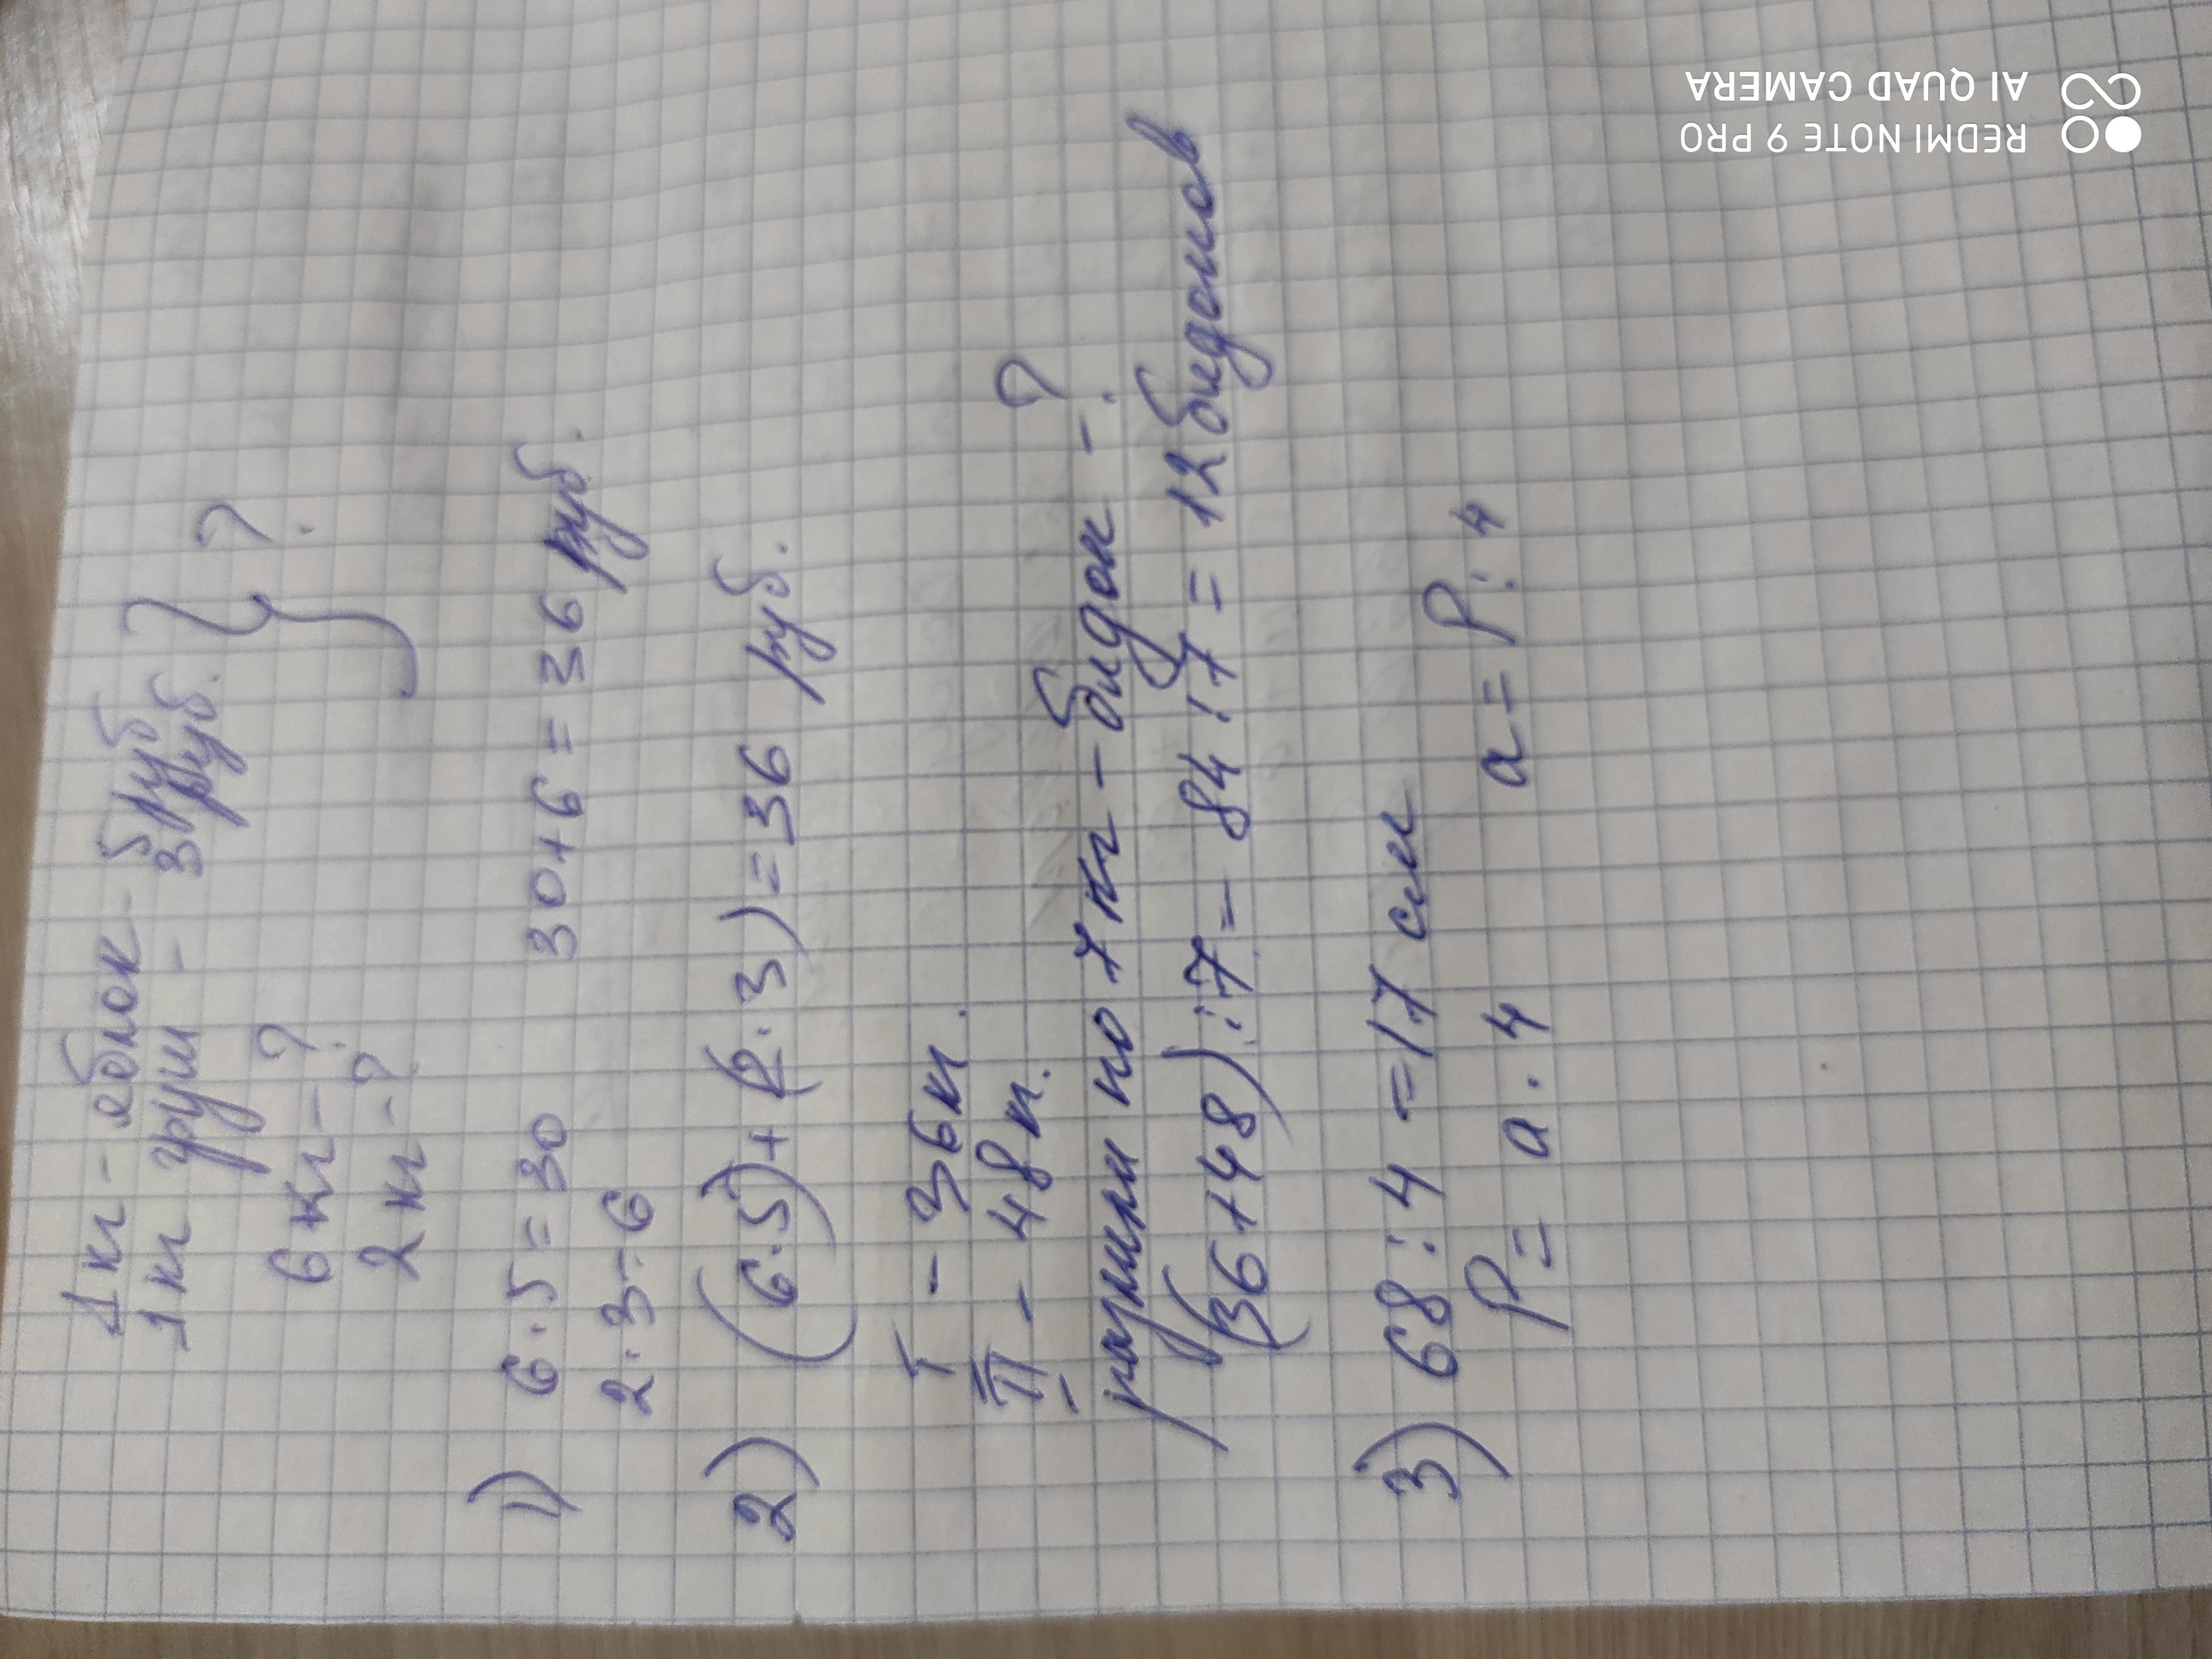 1 кг - яблок - 5 руб
1 кг груш - 3 руб.
6 кг - ?
2 кг - ?
?
1) 6 · 5 = 30 30 + 6 = 36 руб.
2 · 3 = 6
2) (6 · 5) + (2 · 3) = 36 руб.
I - 36 к.
II - 48 к.
по 7 кг - бидон - ?
(36 + 48) : 7 = 84 : 7 = 12 бидонов
3) 68 : 4 = 17 см
P = a · 4 a = P : 4
REDMI NOTE 9 PRO
AI QUAD CAMERA